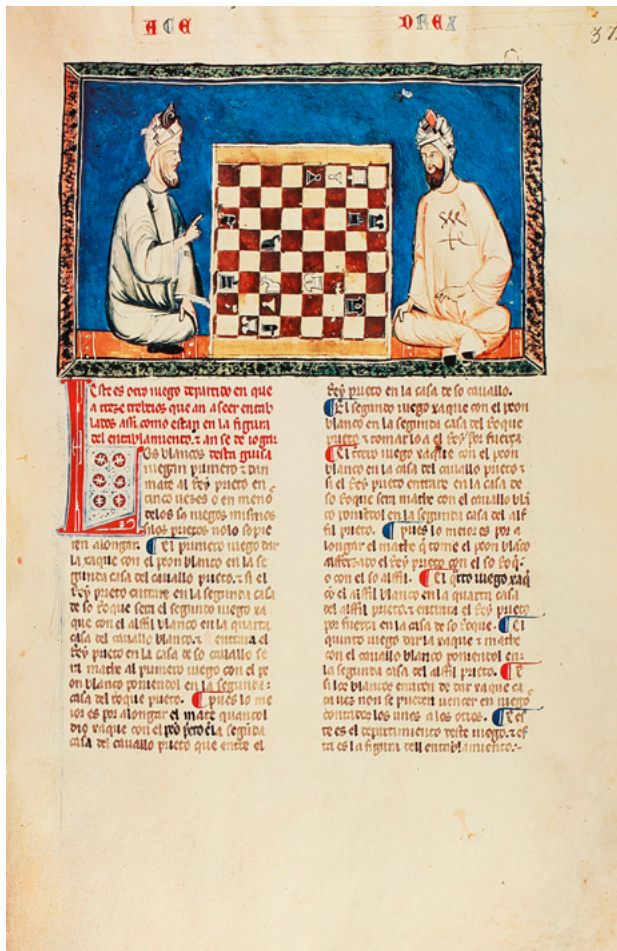 ACE DREX
37
Este es otro iuego departido en que
a treze trebeios que an a seer entab
lados assi como estan en la figura
del entablamiento. & an se de iogar
desta guisa
Los blancos
iuegan primero & dan
mate al Rey prieto en
cinco uezes o en meno
delos sos iuegos mismos
si los prietos nolo sopie
ren alongar. El primero iuego dar
la xaque con el peon blanco en la se
gunda casa del cauallo prieto. & si el
Rey prieto entrare en la segunda casa
de so Roque sera el segundo iuego xa
que con el alffil blanco en la quarta
casa del cauallo blanco. & entrara el
Rey prieto en la casa de so cauallo se
ra mathe al primero iuego con el pe
on blanco poniendol en la segunda
casa del roque prieto. Pues lo me
ior es por alongar el mate quandol
dio xaque con el peon prieto en la segunda
casa del cauallo prieto que entre el
Rey prieto en la casa de so cauallo.
El segundo iuego xaque con el peon
blanco en la segunda casa del Roque
prieto & tomarlo a el Rey por fuerça
El tercero iuego xaque con el peon
blanco en la casa del cauallo prieto &
si el Rey prieto entrare en la casa de
so Roque sera mathe con el cauallo blā
co poniendol en la segunda casa del alf
fil prieto. pues lo meior es por a
longar el mathe q̃ tome el peon blāco
alfferzado el Rey prieto con el so Roq̃
o con el so alffil. El q̃rto iuego xaq̃
cō el alffil blanco en la quarta casa
del alffil prieto. & entrara el Rey prieto
por fuerça en la casa de so Roque. El
quinto iuego dar la xaque & mathe
con el cauallo blanco poniendol en
la segunda casa del alffil prieto. E
si los blancos erraren de dar xaque ca
da uez non se pueden uencer en iuego
contados los unos a los otros. E est
te es el departimiento deste iuego. & es
ta es la figura dell entablamiento.